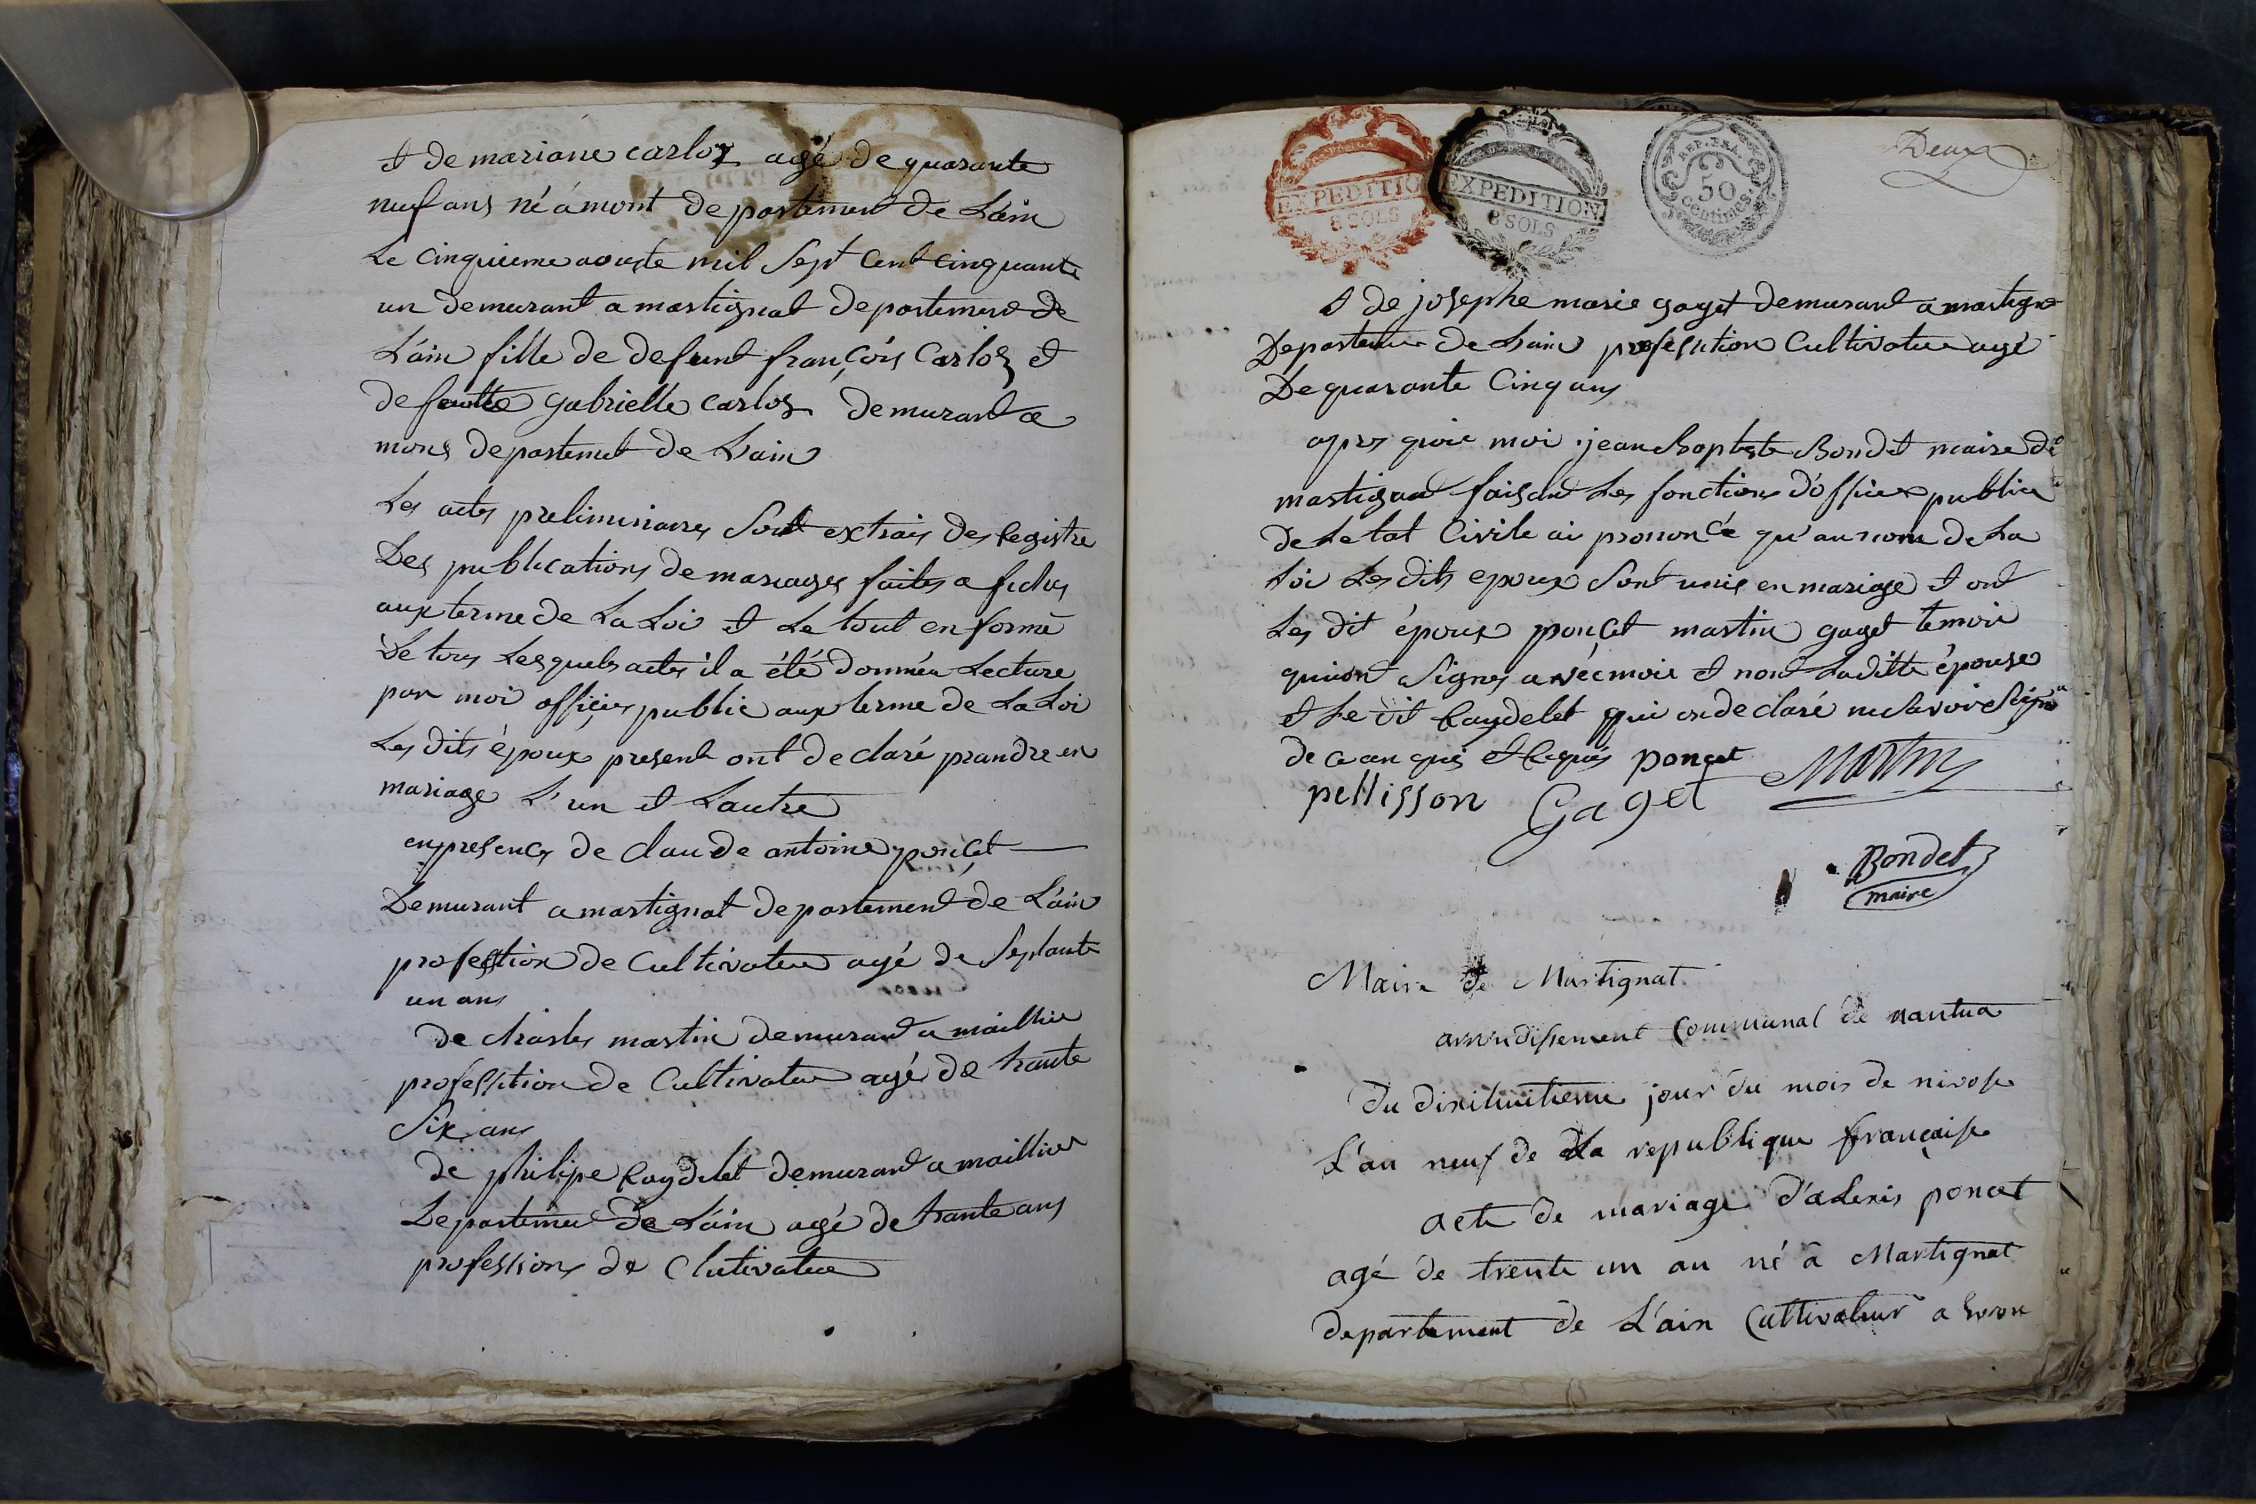 et de mariane carloz agé de quarante
neuf ans né á mont departement de Láin
Le cinquieme aouste mil Sept Cent cinquante
un demurant a martignat departement de
Láin fille de defunt françóis Carloz et
defuntte gabrielle carloz demurant a
mons departemet de Lain
Les actes preliminaires Sont extrais des Registre
Des publications de mariages faites afiches
aux terme de La Loi et Le tout en forme
De tous Lesquels actes il a été donnéu Lecture
par moi officier public aux terme de La Loi
Les dits époux present ont declaré prandre en
mariage L'un et Lautre
en presence de claude antoine ponçet
Demurant a martignat departement de Láin
profestion de Cultivateur agé de Septante
un ans
de charles martin demurant a maillia
profestition de Cultivateur agé de trante
Six ans
de philipe Raydelet demurant a maillia
Departemen de Láin agé de trante ans
profession de Clutivateur
EXPEDITIO
8 SOLS
EXPEDITION
8 SOLS
REP. FRA.
50
centimes.
Deux
et de josephe marie gaget demurant a martigna
Departemen de Lain profestition Cultivateur agé
De quarante Cinq ans
apres quoi moi jean Baptiste Bondet maire de
martignat faisant Les fonctions d'officier public
de Letat Civile ai prononcé qu'au nom de La
Loi Les dits epoux Sont unis en mariage et ont
Les dit époux ponçet martin gaget temoin
qui ont Signes avéc moi et non Laditte épouse
et Le dit Raydelet qui on declaré ne Savoir Signe
de ce enquis et Requis ponçet
pellisson Gaget Martin
Bondet
maire
Mairie de Martignat
arrondissement Communal de nantua
Du dixihuitieme jour du mois de nivose
L'an neuf de La republique française
acte de mariage d'alexis poncet
agé de trente un an né a Martignat
departement de L'ain Cultivateur a